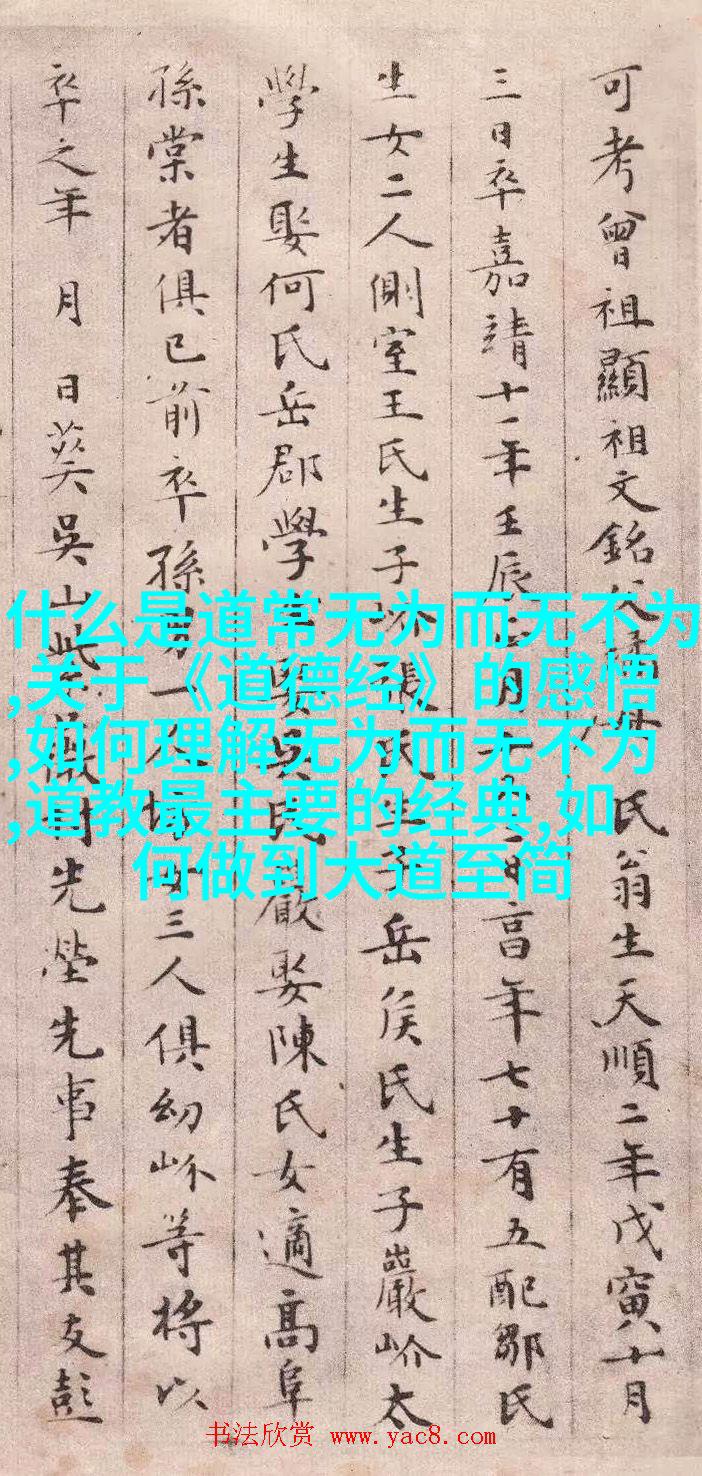 可考曾祖顯祖文銘父氏翁生天順二年戊寅十月
三日卒嘉靖十一年壬辰月日享年七十有五配鄒氏
生女二人側室王氏生子張氏生子岳侯氏生子巖岕太
學生娶何氏岳郡學生娶吳氏巖娶陳氏女適高阜
孫棠者俱已前卒孫男一人女三人俱幼岕等將以
卒之年 月 日葬吳山紫先塋先事奉其友彭
什么是道常无为而无不为
,关于《道德经》的感悟
,如何理解无为而无不为
,道教最主要的经典,如
何做到大道至简
书法欣赏 www.yac8.com